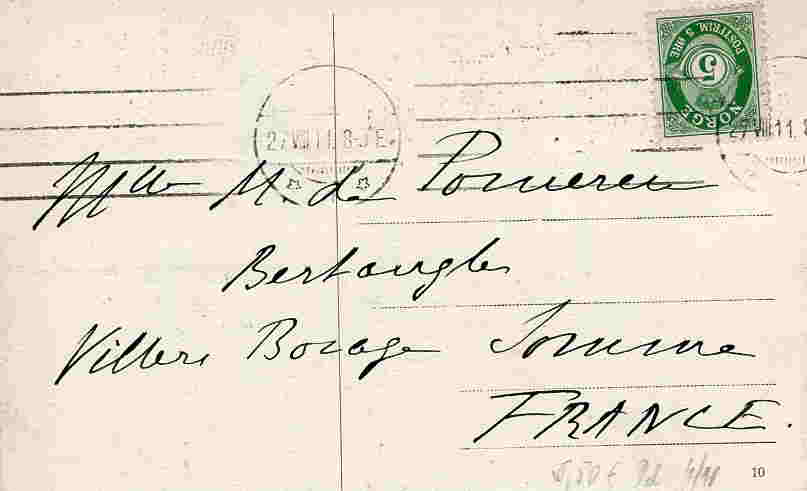 POSTFRIM. 5 ØRE
5
NORGE
27 VIII 11. 8-
27 VIII 11. 8
Mlle M. de Pomereu
Bertangles
Villers Bocage Somme
FRANCE.
10